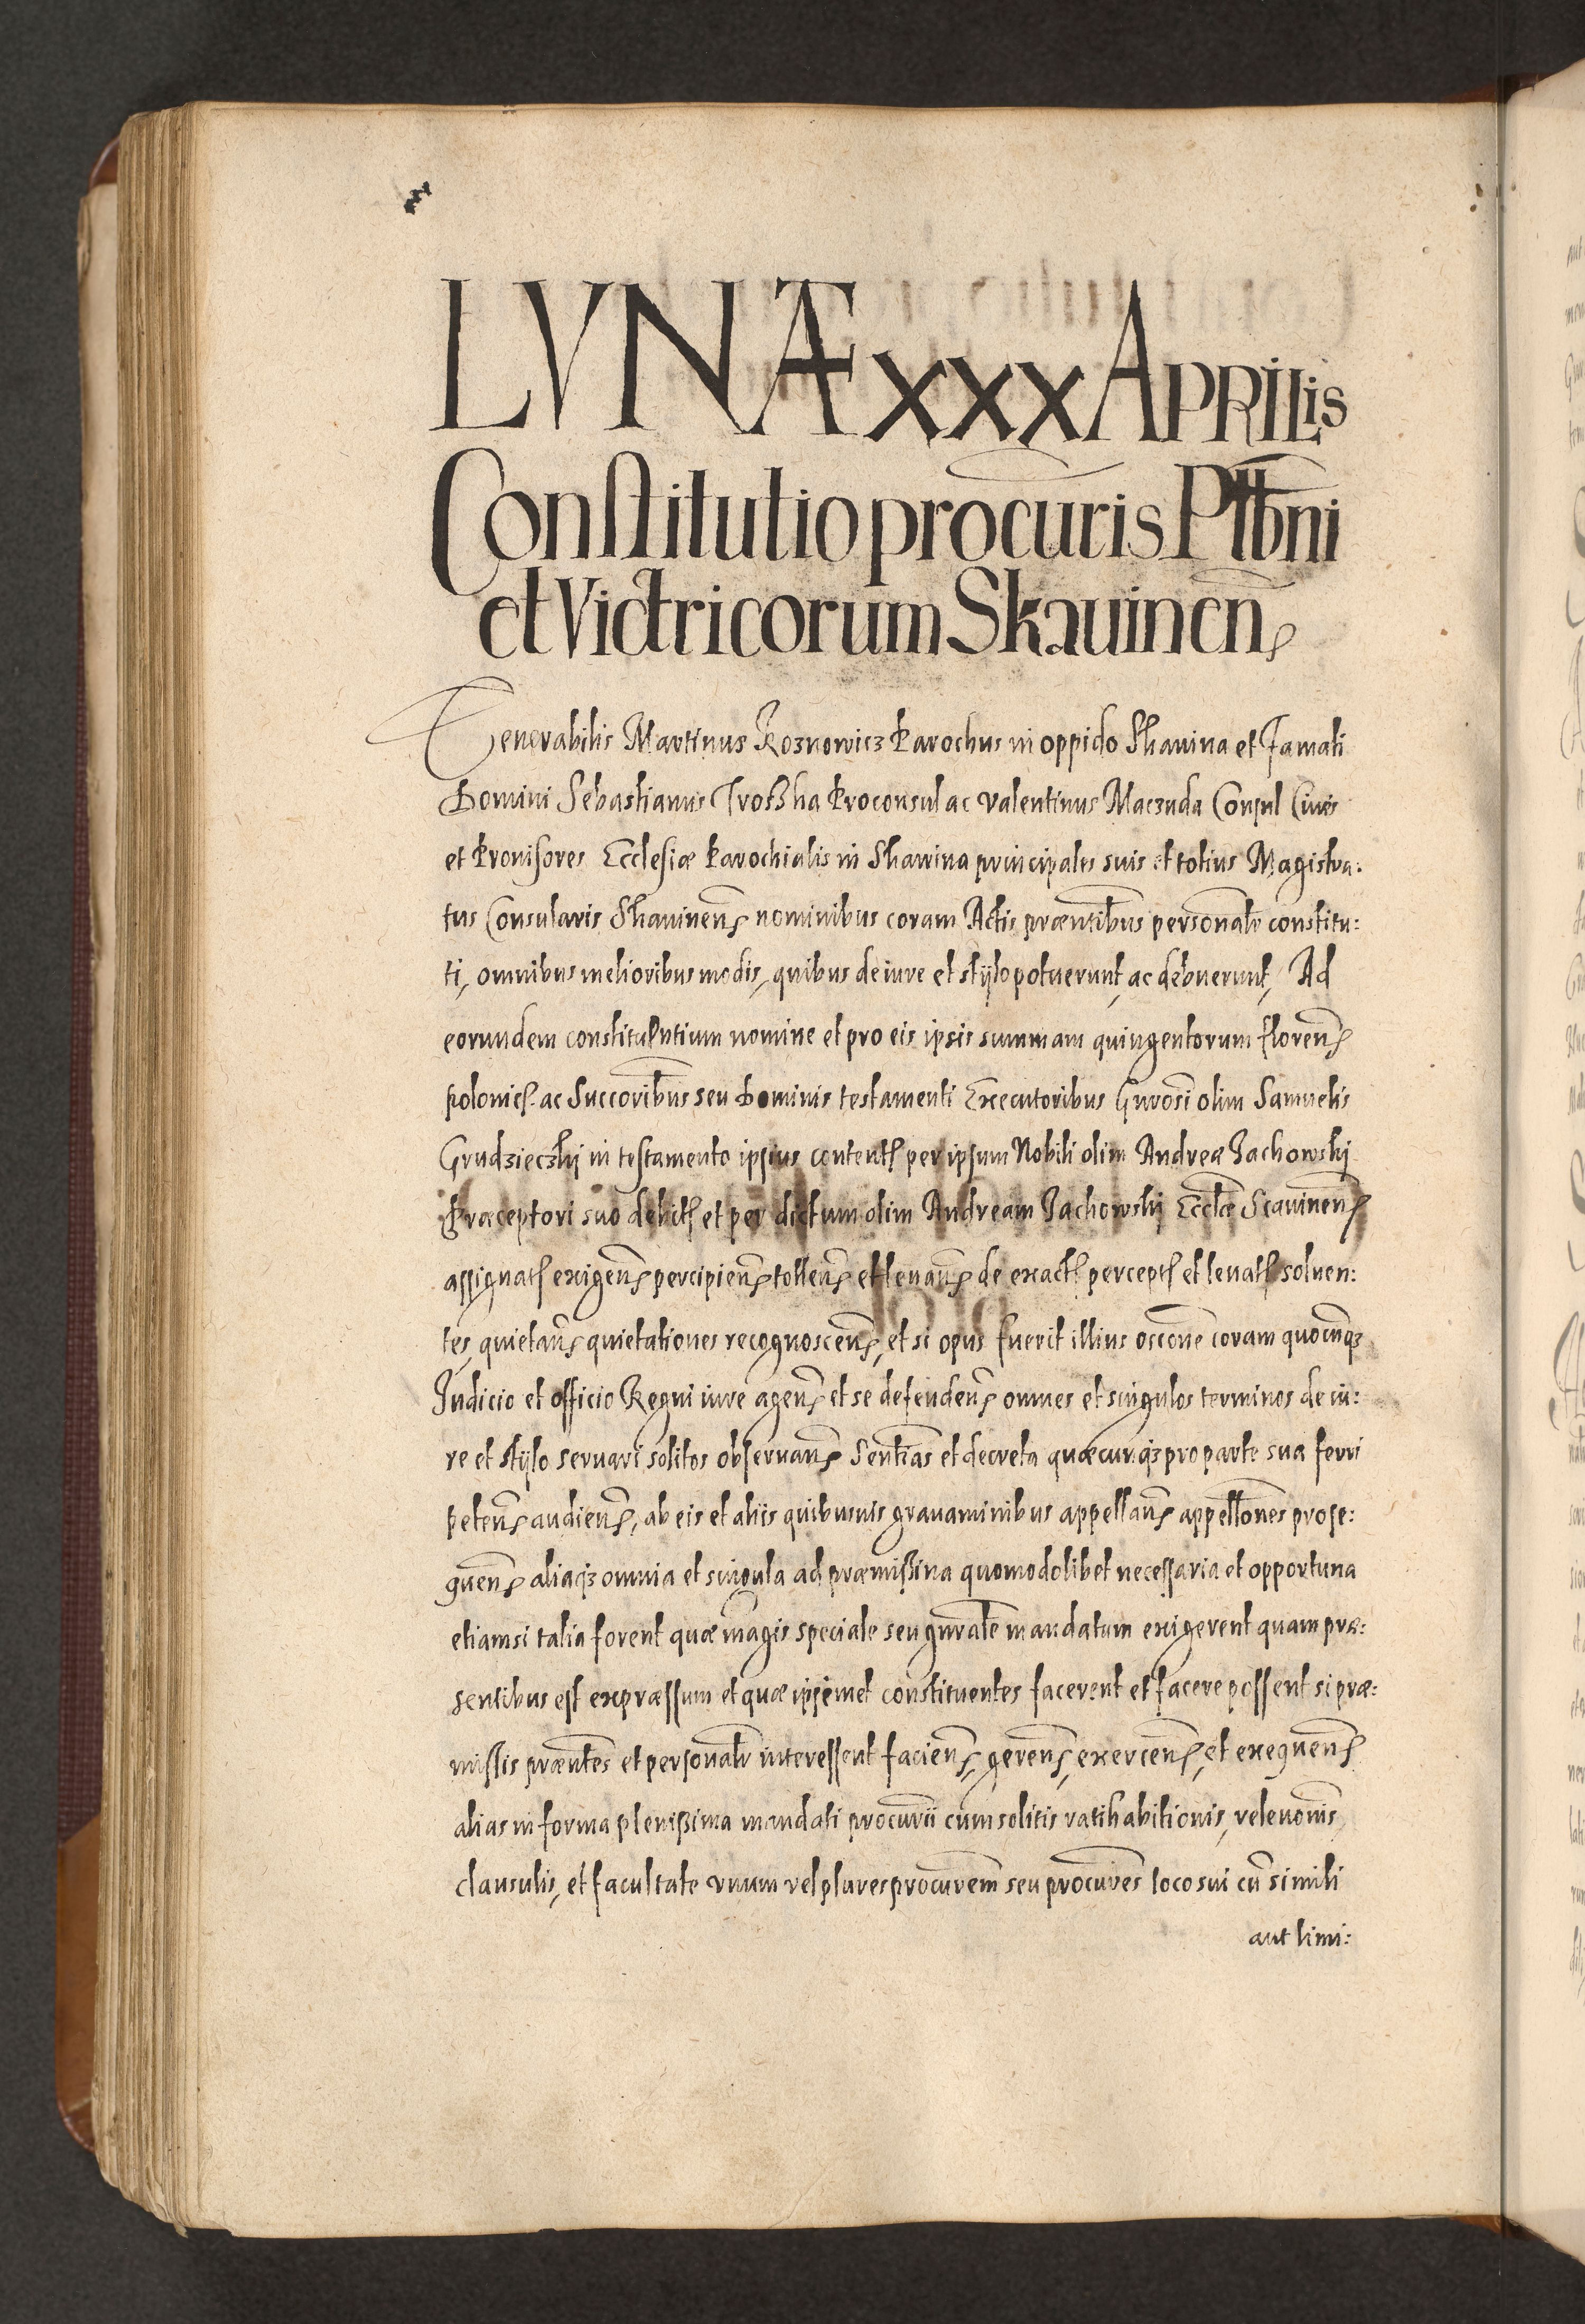 LVNÆ XXX APRILis
Constitutio procuris Plbni
et Victricorum Skauinen̄
Venerabilis Martinus Koznowicz Parochus in oppido Skauina et Famati
Domini Sebastianus Troßka Proconsul ac Valentinus Maczuda Consul Ciues
et Prouisores Ecclesiæ Parochialis in Skawina principales suis et totius Magistra:
tus Consularis Skauinen̄ nominibus coram Actis præntibus personalr constitu:
ti, omnibus melioribus modis, quibus de iure et stÿlo potuerunt, ac debuerunt, Ad
eorundem constituentium nomine et pro eis ipsis summam quingentorum floren̄
polonic. ac Succoribus seu Dominis testamenti Executoribus Gnrosi olim Samuelis
Grudzieczkij in testamento ipsius content per ipsum Nobili olim Andreæ Jachowskij
Præceptori suo debit et per dictum olim Andream Jachowskij Ecclæ Scauinen̄
assignat exigen̄ percipien̄ tollen̄ et leuan̄ de exact percept et leuat soluen:
tes, quietan̄ quietationes recognoscen̄, et si opus fuerit illius occone coram quocunqȝ
Judicio et officio Regni iure agen̄ et se defenden̄ omnes et singulos terminos de iu:
re et stÿlo seruari solitos obseruan̄ Sentias et decreta quæcunqȝ pro parte sua ferri
peten̄ audien̄, ab eis et aliis quibusuis grauaminibus appellan̄ appellones prose:
quen̄ aliaqȝ omnia et singula ad præmißina quomodolibet necessaria et opportuna
etiamsi talia forent quæ magis speciale seu gnrale mandatum exigerent quam præ:
sentibus est expræssum et quæ ipsimet constituentes facerent et facere possent si præ:
missis præntes et personalr interessent facien̄, geren̄, exercen̄, et exequen̄
alias in forma plenißima mandati procurii cum solitis ratihabitionis, releuonis
clausulis, et facultate vnum vel plures procurem seu procures loco sui cū simili
aut limi: